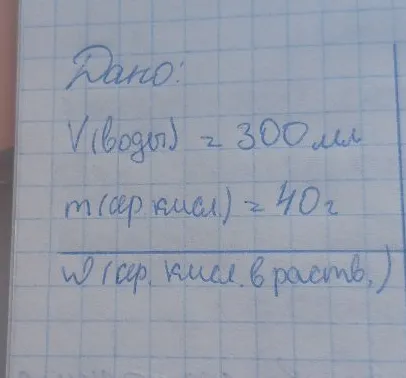 Дано:
V(воды) = 300 мл
m(сер. кисл.) = 40 г
W (сер. кисл. в раств.)